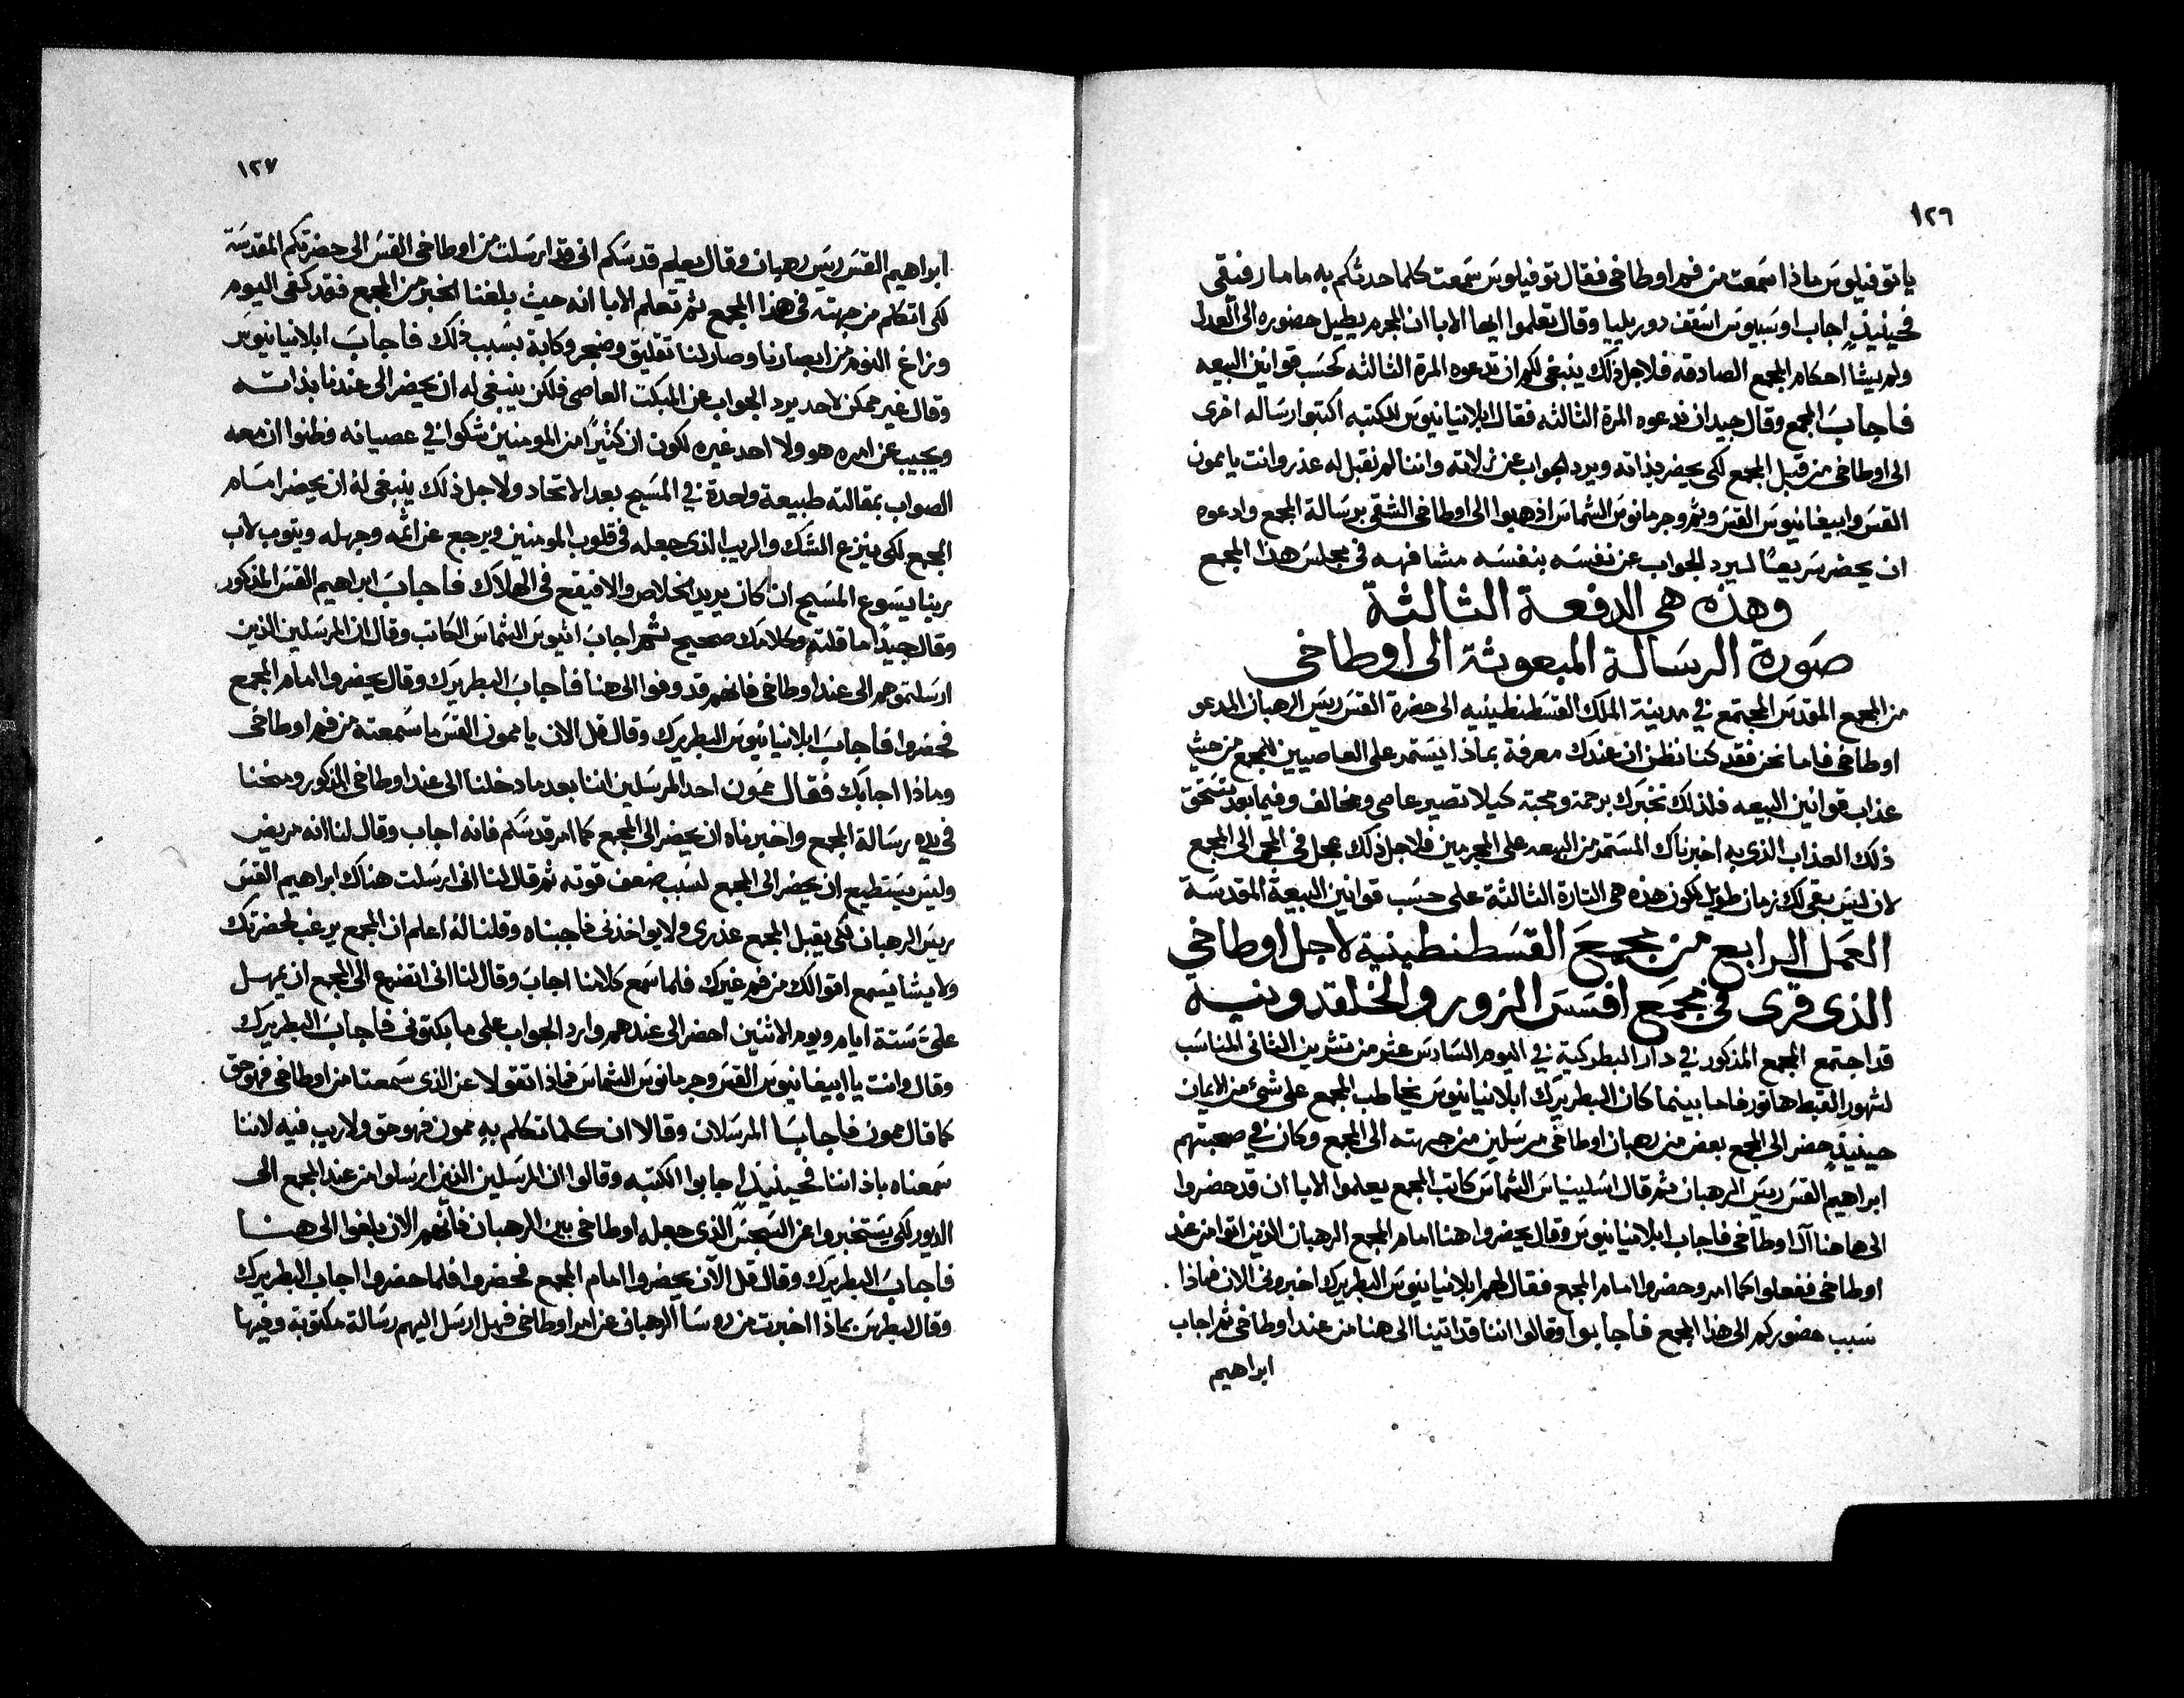 ١٢٦
يا توفيلوس ماذا سمعت من فم اوطاخي فقال توفيلوس سمعت كلما حدثكم به ماما رفيقي
فحينيذٍ اجاب اوسبيوس اسقف دوريليا وقال تعلموا ايها الابا ان المجرم يطيل حضوره الى العدل
ولم يشا احكام المجمع الصادقه فلاجل ذلك ينبغي لكم ان تدعوه المرة الثالثه كحسب قوانين البيعه
فاجاب المجمع وقال جيد ان ندعوه المرة الثالثه فقال ابلانيانيوس للكتبه اكتبوا رساله اخرى
الى اوطاخي من قبل المجمع لكي يحضر بذاته ويرد الجواب عن زلاته واننا لم نقبل له عذر وانت يا ممون
القس وابيفانيوس القس وجرمانوس الشماس اذهبوا الى اوطاخي الشقي برسالة المجمع وادعوه
ان يحضر سريعًا ليرد الجواب عن نفسه بنفسه مشافهه في مجلس هذا المجمع
وهذه هي الدفعة الثالثة
صورة الرسالة المبعوثة الى اوطاخي
من المجمع المقدس المجتمع في مدينة الملك القسطنطينيه الى حضرة القس ريس الرهبان المدعو
اوطاخي فاما نحن فقد كنا نظن ان عندك معرفة بماذا يستمد على العاصيين للمجمع من حيث
عذاب قوانين البيعه فلذلك نخبرك برحمة ومحبة كيلا تصير عاصي ومخالف وفيما بعد تستحق
ذلك العذاب الذي به اخبرناك المستمد من البيعه على المجرمين فلاجل ذلك عجل في المجي الى المجمع
لان ليس بقي لك زمان طويل لكون هذه هي التارة الثالثة على حسب قوانين البيعة المقدسة
العمل الرابع من مجمع القسطنطينية لاجل اوطاخي
الذي قري في مجمع افسس الزور والخلقدونية
قد اجتمع المجمع المذكور في دار البطركية في اليوم السادس عشر من تشرين الثاني المناسب
لشهور القبط هاتور فاما بينما كان البطريرك ابلانيانيوس يخاطب المجمع على شي من الايمان
حينيذٍ حضر الى المجمع بعض من رهبان اوطاخي مرسلين من جهته الى المجمع وكان في صحبتهم
ابراهيم القس ريس الرهبان ثم قال اسلبيناس الشماس كاتب المجمع يعلموا الابا ان قد حضروا
الى هاهنا آل اوطاخي فاجاب ابلانيانيوس وقال يحضروا هنا امام المجمع الرهبان الذين اتوا من عند
اوطاخي ففعلوا كما امر وحضروا امام المجمع فقال لهم ابلانيانيوس البطريرك اخبروني الان فماذا
سبب حضوركم الى هذا المجمع فاجابوا وقالوا اننا قد اتينا الى هنا من عند اوطاخي ثم اجاب
ابراهيم
١٢٧
ابراهيم القس ريس رهبان وقال يعلم قدسكم اني قد ارسلت من اوطاخي القس الى حضرتكم المقدسة
لكي اتكلم من جهته في هذا المجمع ثم تعلم الابا انه حيث بلغنا الخبر من المجمع فقد كفى اليوم
وزاغ النوم من ابصارنا وصار لنا تعليق وضجر وكابة بسبب ذلك فاجاب ابلانيانيوس
وقال غير ممكن لاحد يرد الجواب عن المبكت العاصي فلكن ينبغي له ان يحضر الى عندنا بذاته
ويجيب عن امره هو ولا احد غيره لكون ان كثيرًا من المومنين شكوا في عصيانه وظنوا ان معه
الصواب بمقالته طبيعة واحدة في المسيح بعد الاتحاد ولاجل ذلك ينبغي له ان يحضر امام
المجمع لكي ينزع الشك والريب الذي جعله في قلوب المومنين ويرجع عن اثمه وجهله ويتوب لاب
ربنا يسوع المسيح ان كان يريد الخلاص والا فيقع في الهلاك فاجاب ابراهيم القس المذكور
وقال جيدًا ما قلته وكلامك صحيح ثم اجاب اتيوس الشماس الكاتب وقال ان المرسلين الذين
ارسلتموهم الى عند اوطاخي فانهم قد وفوا الى هنا فاجاب البطريرك وقال يحضروا امام المجمع
فحضروا فاجاب ابلانيانيوس البطريرك وقال قل الان يا ممون القس ما سمعته من فم اوطاخي
وماذا اجابك فقال ممون احد المرسلين اننا بعد ما دخلنا الى عند اوطاخي المذكور ومنحنا
في يده رسالة المجمع واخبرناه ان يحضر الى المجمع كما امر قدسكم فانه اجاب وقال لنا انه مريض
وليس يستطيع ان يحضر الى المجمع لسبب ضعف قوته ثم قال لنا اني ارسلت هناك ابراهيم القس
ريس الرهبان لكي يقبل المجمع عذري ولا يواخذني فاجبناه وقلنا له اعلم ان المجمع يرغب لحضرتك
ولا يشا يسمع اقوالك من فم غيرك فلما سمع كلامنا اجاب وقال لنا اني اتضرع الى المجمع ان يمهل
عليّ ستة ايام ويوم الاثنين احضر الى عندهم وارد الجواب على ما بكتوني فاجاب البطريرك
وقال وانت يا ابيفانيوس القس وجرمانوس الشماس فماذا اتقولا عن الذي سمعتما من اوطاخي فهو حق
كما قال ممون فاجابا المرسلان وقالا ان كلما تكلم به ممون فهو حق ولا ريب فيه لاننا
سمعناه باذاننا فحينيذٍ اجابوا الكتبه وقالوا ان المرسلين الذين ارسلوا من عند المجمع الى
الديور لكي يستخبروا عن السجس الذي جعله اوطاخي بين الرهبان فانهم الان بلغوا الى هنا
فاجاب البطريرك وقال قل الآن يحضروا امام المجمع فحضروا فلما حضروا اجاب البطريرك
وقال لبطرس بماذا اخبرت من روسا الرهبان عن امر اوطاخي فهل ارسل اليهم رسالة مكتوبة وفيها